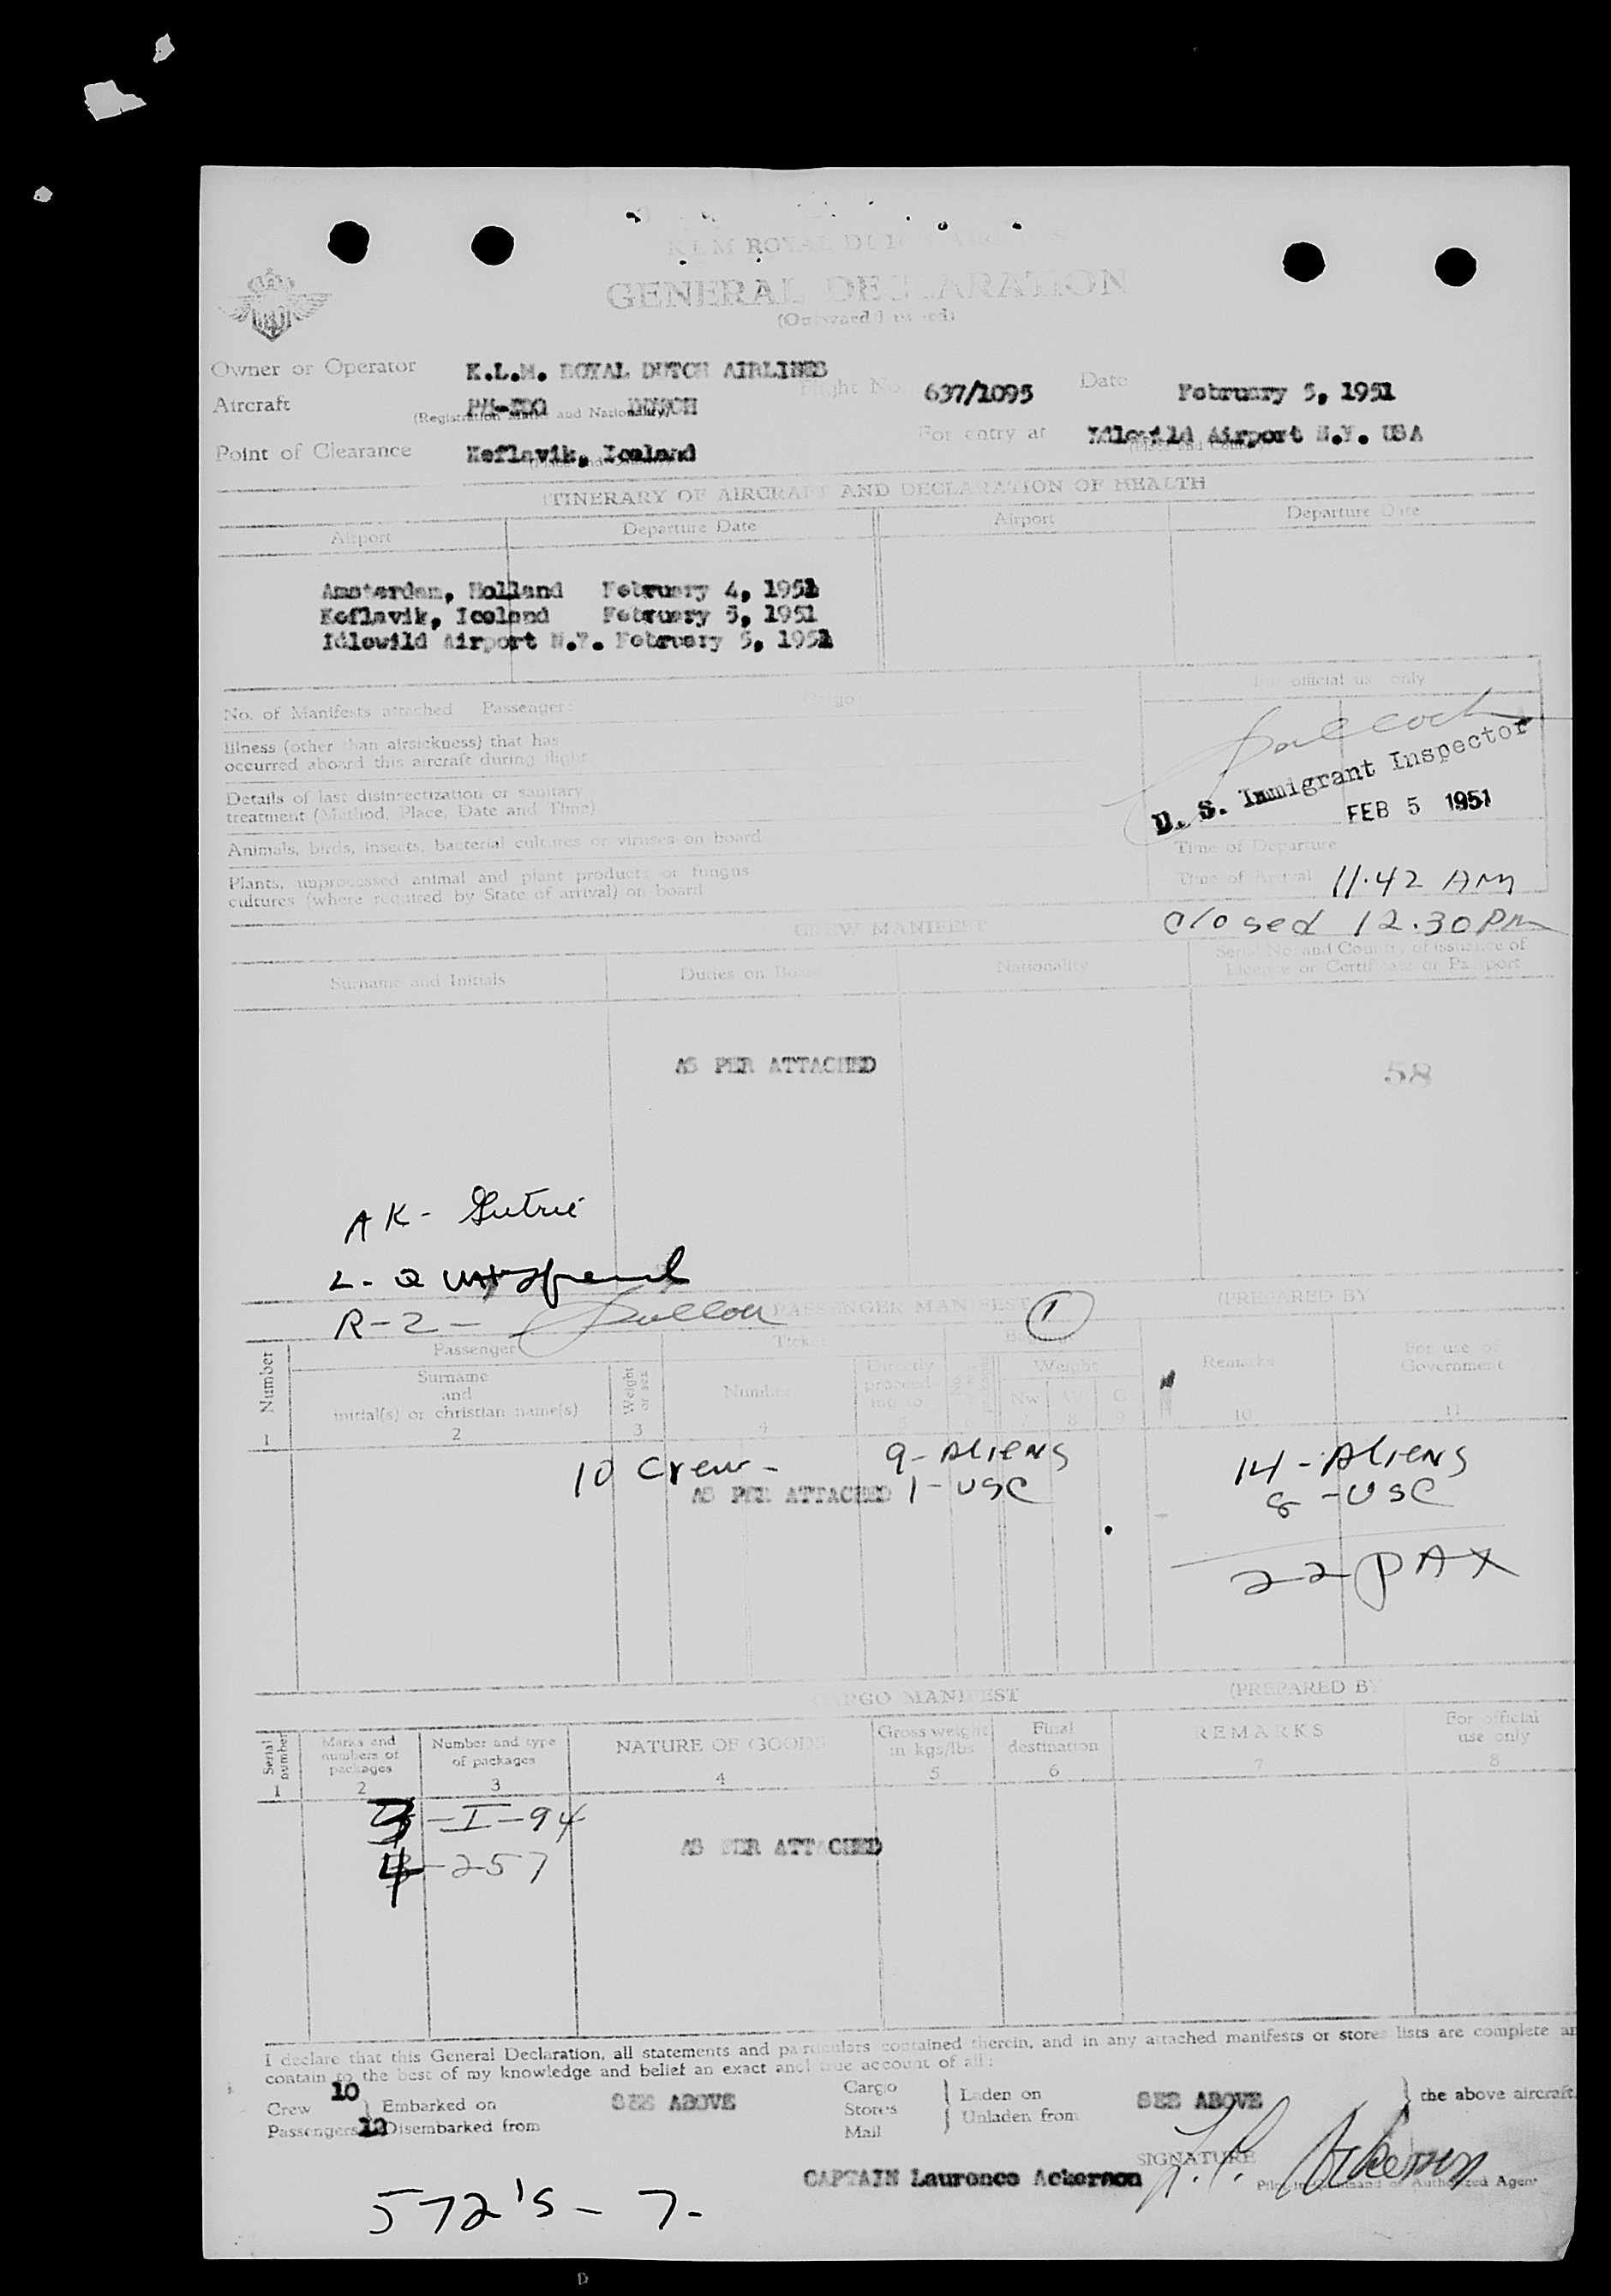 K.L.M ROYAL DUTCH AIRLINES
GENERAL DECLARATION
(Outward/Inward)
Owner or Operator K.L.M. ROYAL DUTCH AIRLINES
Flight No. 637/1095 Date February 5, 1951
Aircraft DUTCH
(Registration Marks and Nationality)
For entry at Idlewild Airport N.Y. USA
(Place and Country)
Point of Clearance Keflavik, Iceland
(Place and Country)
ITINERARY OF AIRCRAFT AND DECLARATION OF HEALTH
Airport Departure Date Airport Departure Date
Amsterdam, Holland February 4, 1951
Keflavik, Iceland February 5, 1951
Idlewild Airport N.Y. February 5, 1951
For official use only
No. of Manifests attached Passenger: Cargo:
Illness (other than airsickness) that has
occurred aboard this aircraft during flight
Details of last disinsectization or sanitary
treatment (Method, Place, Date and Time)
Animals, birds, insects, bacterial cultures or viruses on board
Plants, unprocessed animal and plant products or fungus
cultures (where required by State of arrival) on board
U. S. Immigrant Inspector
FEB 5 1951
Time of Departure
Time of Arrival 11.42 AM
closed 12.30 PM
CREW MANIFEST
Surname and Initials Duties on Board Nationality Serial No. and Country of issuance of
Licence or Certificate or Passport
AS PER ATTACHED
58
AK-
L-
R-2-
PASSENGER MANIFEST 1 (PREPARED BY
Number Passenger Ticket Baggage Remarks For use of
Government
Surname
and
initial(s) or christian name(s)
Weight
or sex
Number Directly
proceed-
ing to
Weight
Nw W C
1 2 3 4 5 6 7 8 9 10 11
10 Crew - 9-ALIENS
1-USC
AS PER ATTACHED
14-ALIENS
8-USC
22 PAX
CARGO MANIFEST (PREPARED BY
Serial
number
Marks and
numbers of
packages
Number and type
of packages
NATURE OF GOODS
Gross weight
in kgs/lbs
Final
destination
REMARKS
For official
use only
1 2 3 4 5 6 7 8
3-I-94
4-257
AS PER ATTACHED
I declare that this General Declaration, all statements and particulars contained therein, and in any attached manifests or stores lists are complete an
contain to the best of my knowledge and belief an exact and true account of all:
Crew 10 Embarked on SEE ABOVE Cargo Laden on SEE ABOVE the above aircraft.
Passengers Disembarked from Stores Unladen from
Mail
SIGNATURE
CAPTAIN Laurence Ackerson
Pilot in Command or Authorized Agent
572's - 7-